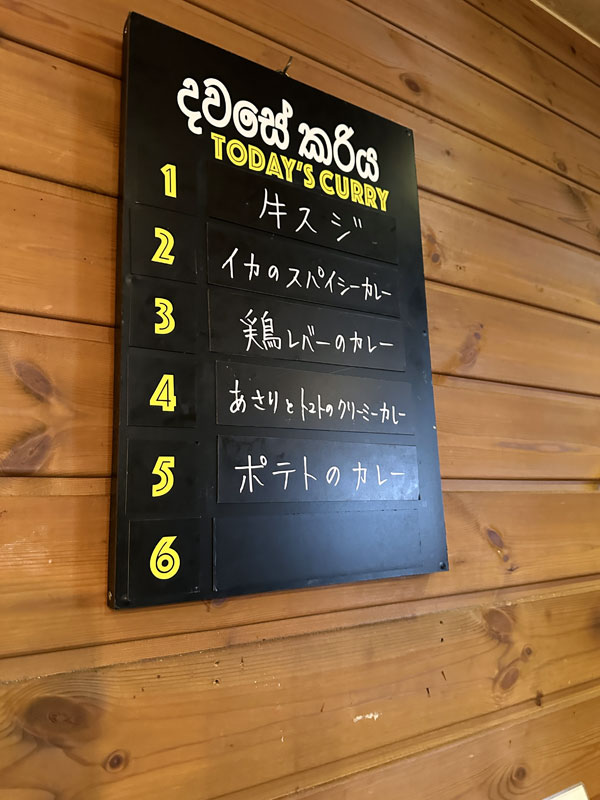 දවසේ කරිය
TODAY'S CURRY
1 牛スジ
2 イカのスパイシーカレー
3 鶏レバーのカレー
4 あさりとトマトのクリーミーカレー
5 ポテトのカレー
6